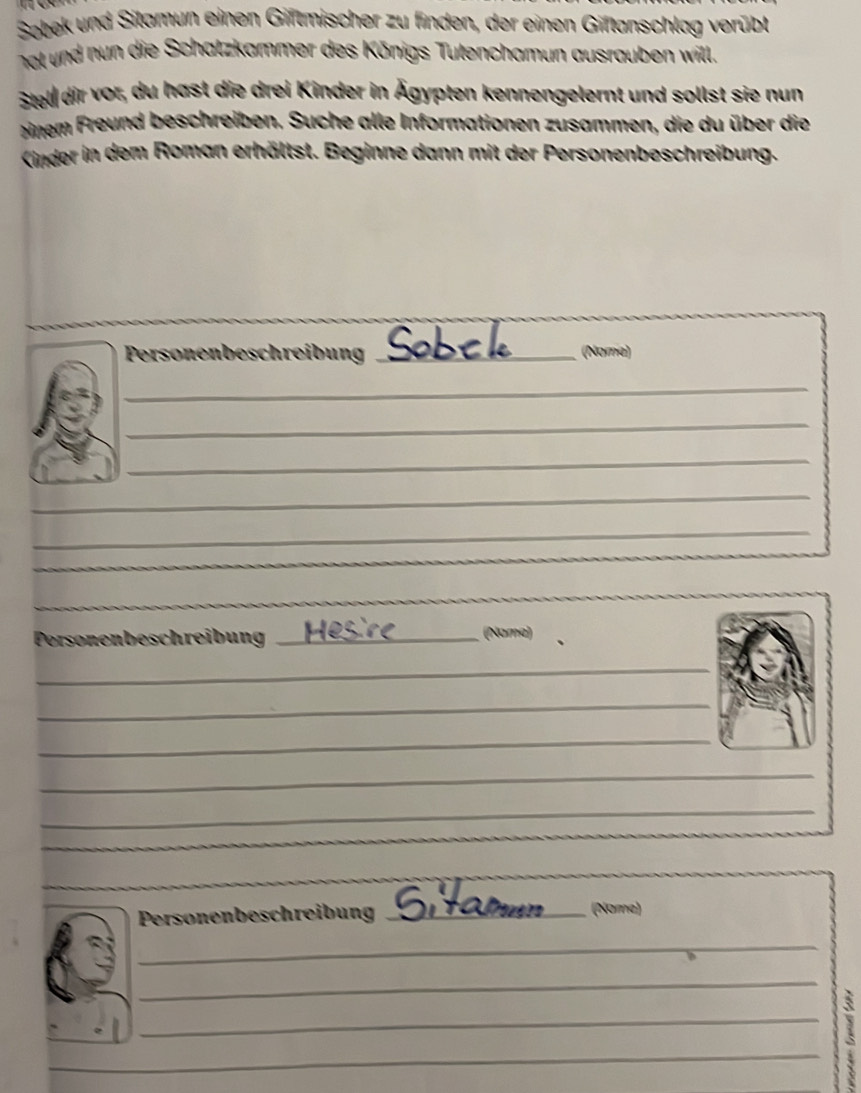 Sobek und Sitamun einen Giftmischer zu finden, der einen Giftanschlag verübt
hat und nun die Schatzkammer des Königs Tutenchamun ausrauben will.
Stell dir vor, du hast die drei Kinder in Ägypten kennengelernt und sollst sie nun
einem Freund beschreiben. Suche alle Informationen zusammen, die du über die
Kinder in dem Roman erhältst. Beginne dann mit der Personenbeschreibung.
Personenbeschreibung Sobek (Name)
Personenbeschreibung Hesire (Name)
Personenbeschreibung Sitamun (Name)